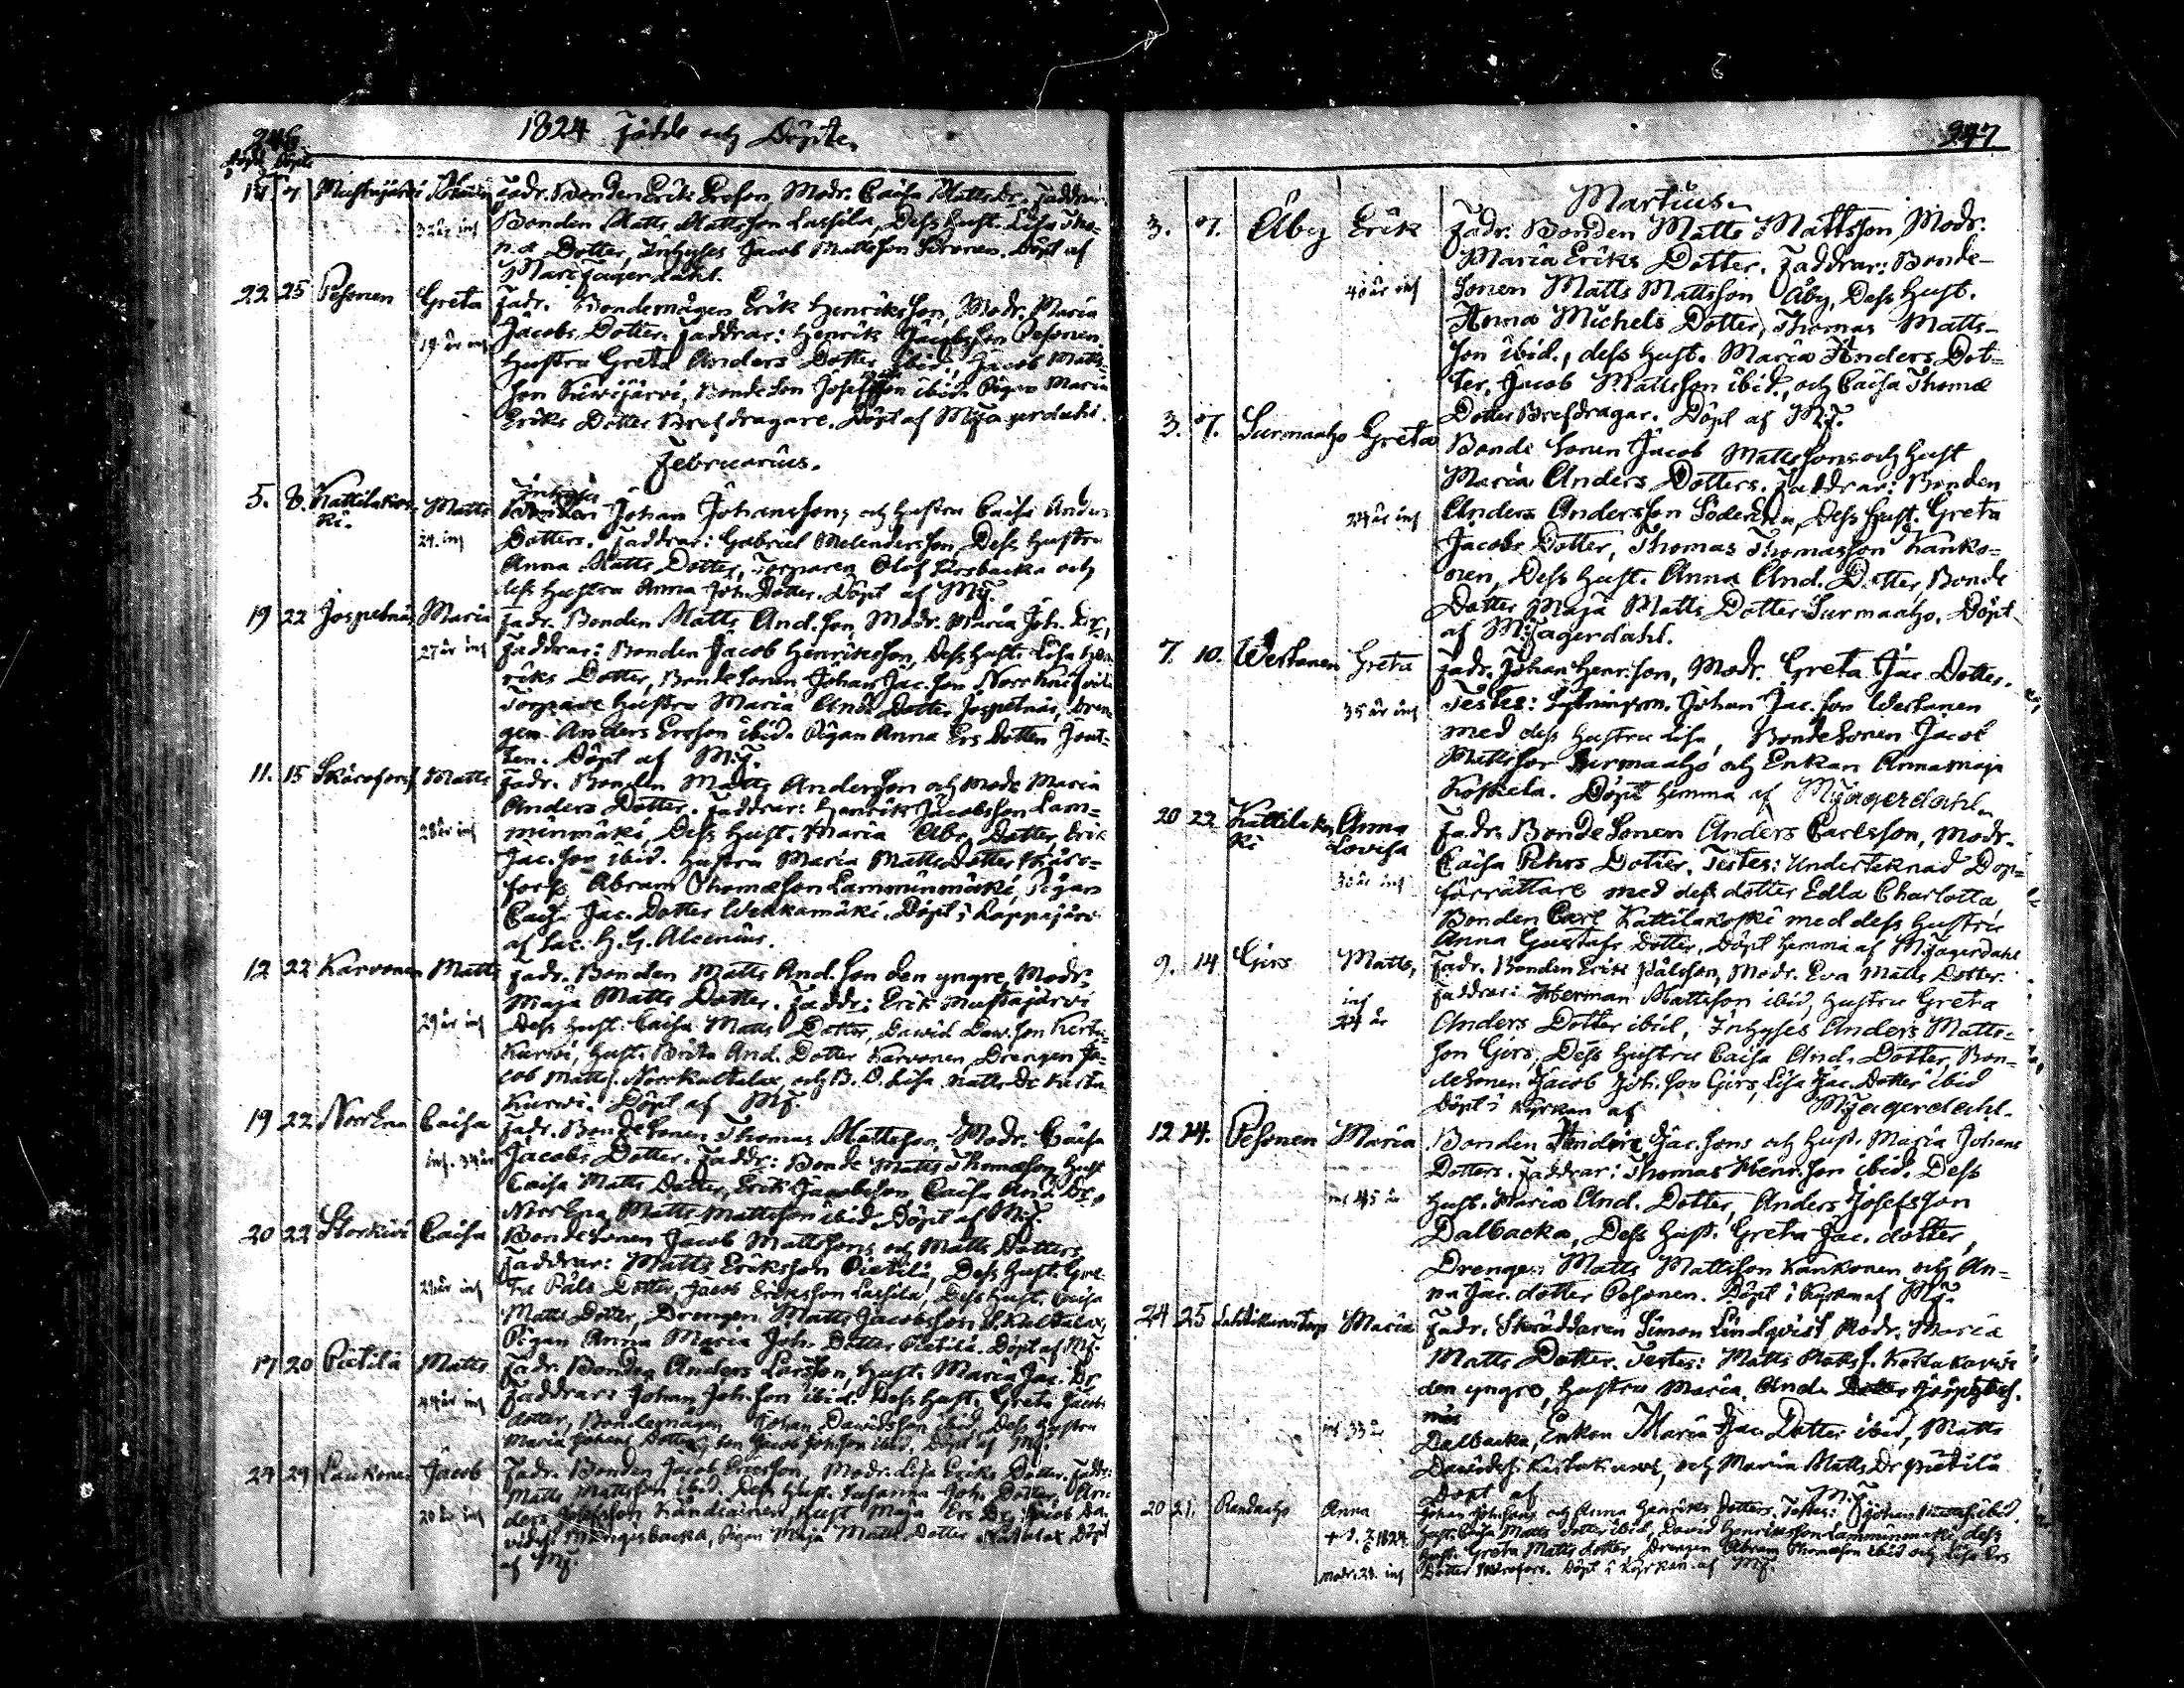 246
1824 Födde och Döpte
Född Döpte
Fadr. Bonden Erik Ersson, Modr. Caisa Matts Dr. Faddrar:
Bonden Matts Mattsson Lassila, Dess Hust. Lisa Tho-
mæ Dotter, Inhyses Jacob Mattsson. Döpt af
Mart: Jagerdahl.
22 25 Pesonen Greta Fadr. Bondemågen Erik Henriksson, Modr. Maria
19 år inf Jacobs Dotter. Faddrar: Henrik Jacobsson Pesonen
Hustru Greta Anders Dotter ibid, Jacob Matts-
son, Bonde Son Josefsson ibid. Pigan Maria
Eriks Dotter Brefdragare. Döpt af MJagerdahl.
Februarius.
Inhyses
5. 8. Kattilakos- Matts Johan Johansson, och Hustru Caisa Anders
ki. 24. inf Dotters. Faddrar: Gabriel Melendersson Dess Hustru
Anna Matts Dotter, Torparen Olof Larsbacka och
dess Hustru Anna Joh. Dotter. Döpt af MJ.
19 22 Jospetnäs Maria Fadr. Bonden Matts And.son, Modr. Maria Joh. Dr,
27 år inf Faddrar: Bonden Jacob Henriksson, Dess Hust. Lisa Hen-
riks Dotter, Bonde Sonen Johan Jac.son
Torpare Hustru Maria And. Dotter Jospetnäs, Dren-
gen Anders Ersson ibid. Pigan Anna Ers Dotter Jout-
ten. Döpt af MJ.
11. 15 Skäcofors Matts Fadr. Bonden Matts Andersson och Modr Maria
Anders Dotter. Faddrar: Henrik Jacobsson Lam-
28 år inf minmäki, Dess Hust. Maria Abr. Dotter, Erik
Jac.son ibid. Hustru Maria Matts Dotter
fors, Abram Thomæson Lamminmäki, Pigan
Caisa Jac. Dotter Wehkamäki. Döpt i Lappajärvi
af Sac. H. G. Alcenius.
12 22 Karvonen Matts Fadr. Bonden Matts And.son den yngre, Modr.
Maja Matts Dotter. Faddr: Erik Mustajärvi
29 år inf Dess Hust. Caisa Matts Dotter, Dawid Daw.son Kerta-
Kurvi, Hust. Brita And. Dotter Karvonen, Drengen Ja-
cob Matts. Norrkultalax, och B. D. Lisa Matts Dr Kerta
Kurwi. Döpt af MJ.
19 22 Norrena Caisa Fadr. Bonde Sonen Thomas Mattsson, Modr. Caisa
inf. 34 år Jacobs Dotter. Faddr: Bonde Matts Thomæson Hust
Caisa Matts Dotter, Erik Jacobsson, Caisa And. Dr.
Norrena, Matts Mattsson ibid. Döpt af MJ.
20 22 Storkivi Caisa Bonde Sonen Jacob Mattsons och Matts Dotters
Faddrar: Matts Eriksson Pietilä, Dess Hust. Gre-
29 år inf ta Påls Dotter, Jacob Eriksson Lassila, Dess Hust. Caisa
Matts Dotter, Drengen Matts Jacobsson
Pigan Anna Maria Joh. Dotter Pietilä. Döpt af MJ.
17 20 Pietilä Matts Fadr. Bonden Anders Larsson, Hust. Maria Jac. Dr
44 år inf Faddrar: Johan Joh.son ibid. Dess Hust. Greta Jacobs
dotter, Bondemågen Johan Dawidsson ibid, Dess Hustru
Maria Johans Dotter, Jacob Johsson ibid. Döpt af MJ.
24 29 Laukonen Jacob Fadr. Bonden Jacob Ersson, Modr. Lisa Eriks Dotter. Faddr:
Matts Mattsson ibid. Dess Hust. Susanna Joh. Dotter, An-
20 år inf ders Josefsson, Hust Maja Ers Dr, Jacob Da-
vidss. Mångesbacka, Pigan Maja Matts Dotter. Döpt
af MJ.
247
Martius
3. 7. Åby Erik Fadr. Bonden Matts Mattsson, Modr.
Maria Eriks Dotter. Faddrar: Bonde-
40 år inf Sonen Matts Mattsson Åby, Dess Hust.
Anna Michels Dotter, Thomas Matts-
son ibid., dess Hust. Maria Anders Dot-
ter, Jacob Mattsson ibid., och Caisa Thomæ
Dotter Brefdragar. Döpt af MJ.
3. 7. Surmaaho Greta Bonde Sonen Jacob Mattssons och Hust
Maria Anders Dotters. Faddrar: Bonden
24 år inf Anders Andersson, Dess Hust. Greta
Jacobs Dotter, Thomas Thomasson Kanko-
nen, Dess Hust. Anna And. Dotter, Bonde
Dotter Maja Matts Dotter Surmaaho. Döpt
af MJagerdahl.
7. 10. Wertanen Greta Fadr. Johan Henr.son, Modr. Greta Jac Dotter.
35 år inf Testes: Johan Jac.son Wertanen
med dess Hustru Lisa, Bonde Sonen Jacob
Mattsson Surmaaho och Enkan Annamaja
Koskela. Döpt hemma af MJagerdahl
20 22 Kattilakos Anna Fadr. Bonde Sonen Anders Carlsson, Modr.
ki Lovisa Caisa Pehrs Dotter. Testes: Underteknad Dop-
30 år inf förrättare med dess dotter Edla Charlotta,
Bonden Carl Kattilakoski med dess Hustru
Anna Gustafs Dotter. Döpt hemma af MJagerdahl
9. 14 Girs Matts, Fadr. Bonden Erik Pålsson, Modr. Eva Matts Dotter.
inf Faddrar: Herman Mattsson ibid, Hustru Greta
24 år Anders Dotter ibid, Inhyses Anders Matts-
son Girs, Dess Hustru Caisa And. Dotter, Bon-
desonen Jacob Joh.son Girs, Lisa Jac. Dotter ibid
Döpt i Kyrkan af MJagerdahl.
12 14. Pesonen Maria Bonden Jac.sons och Hust. Maria Johans
Dotters. Faddrar: Thomas Henr.son ibid. Dess
inf 45 år Hust. Maria And. Dotter, Anders Josefsson
Dalbacka, Dess Hust. Greta Jac. dotter,
Drengen Matts Mattsson Kankonen och An-
na Jac. dotter Pesonen. Döpt i Kyrkan af MJ.
24 25 Maria Fadr. Skräddaren Simon Lindqvist Modr. Maria
Matts Dotter. Testes: Matts Matss.
den yngre, Hustru Maria And.
inf 33 år Dalbacka, Enkan Maria Jac Dotter ibid, Matts
Davidss. Kertakurwi, och Maria Matts Dr Pietilä
Döpt af MJ.
20 21. Randaaho Anna Johan Johssons och Anna Henriks Dotters. Testes: Johan ibid.
Hust. Caisa Matts Dotter ibid, David Henriksson Lamminmäki, dess
Hust. Greta Matts dotter, Drengen Abram Thomæson ibid och Lisa Ers
Modr. 28. inf Dotter. Döpt i Kyrkan af MJ.